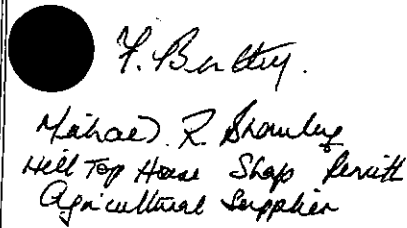 F. Bentley.
Michael R. Bromley
Hill Top House Shap Penrith
Agricultural Supplier